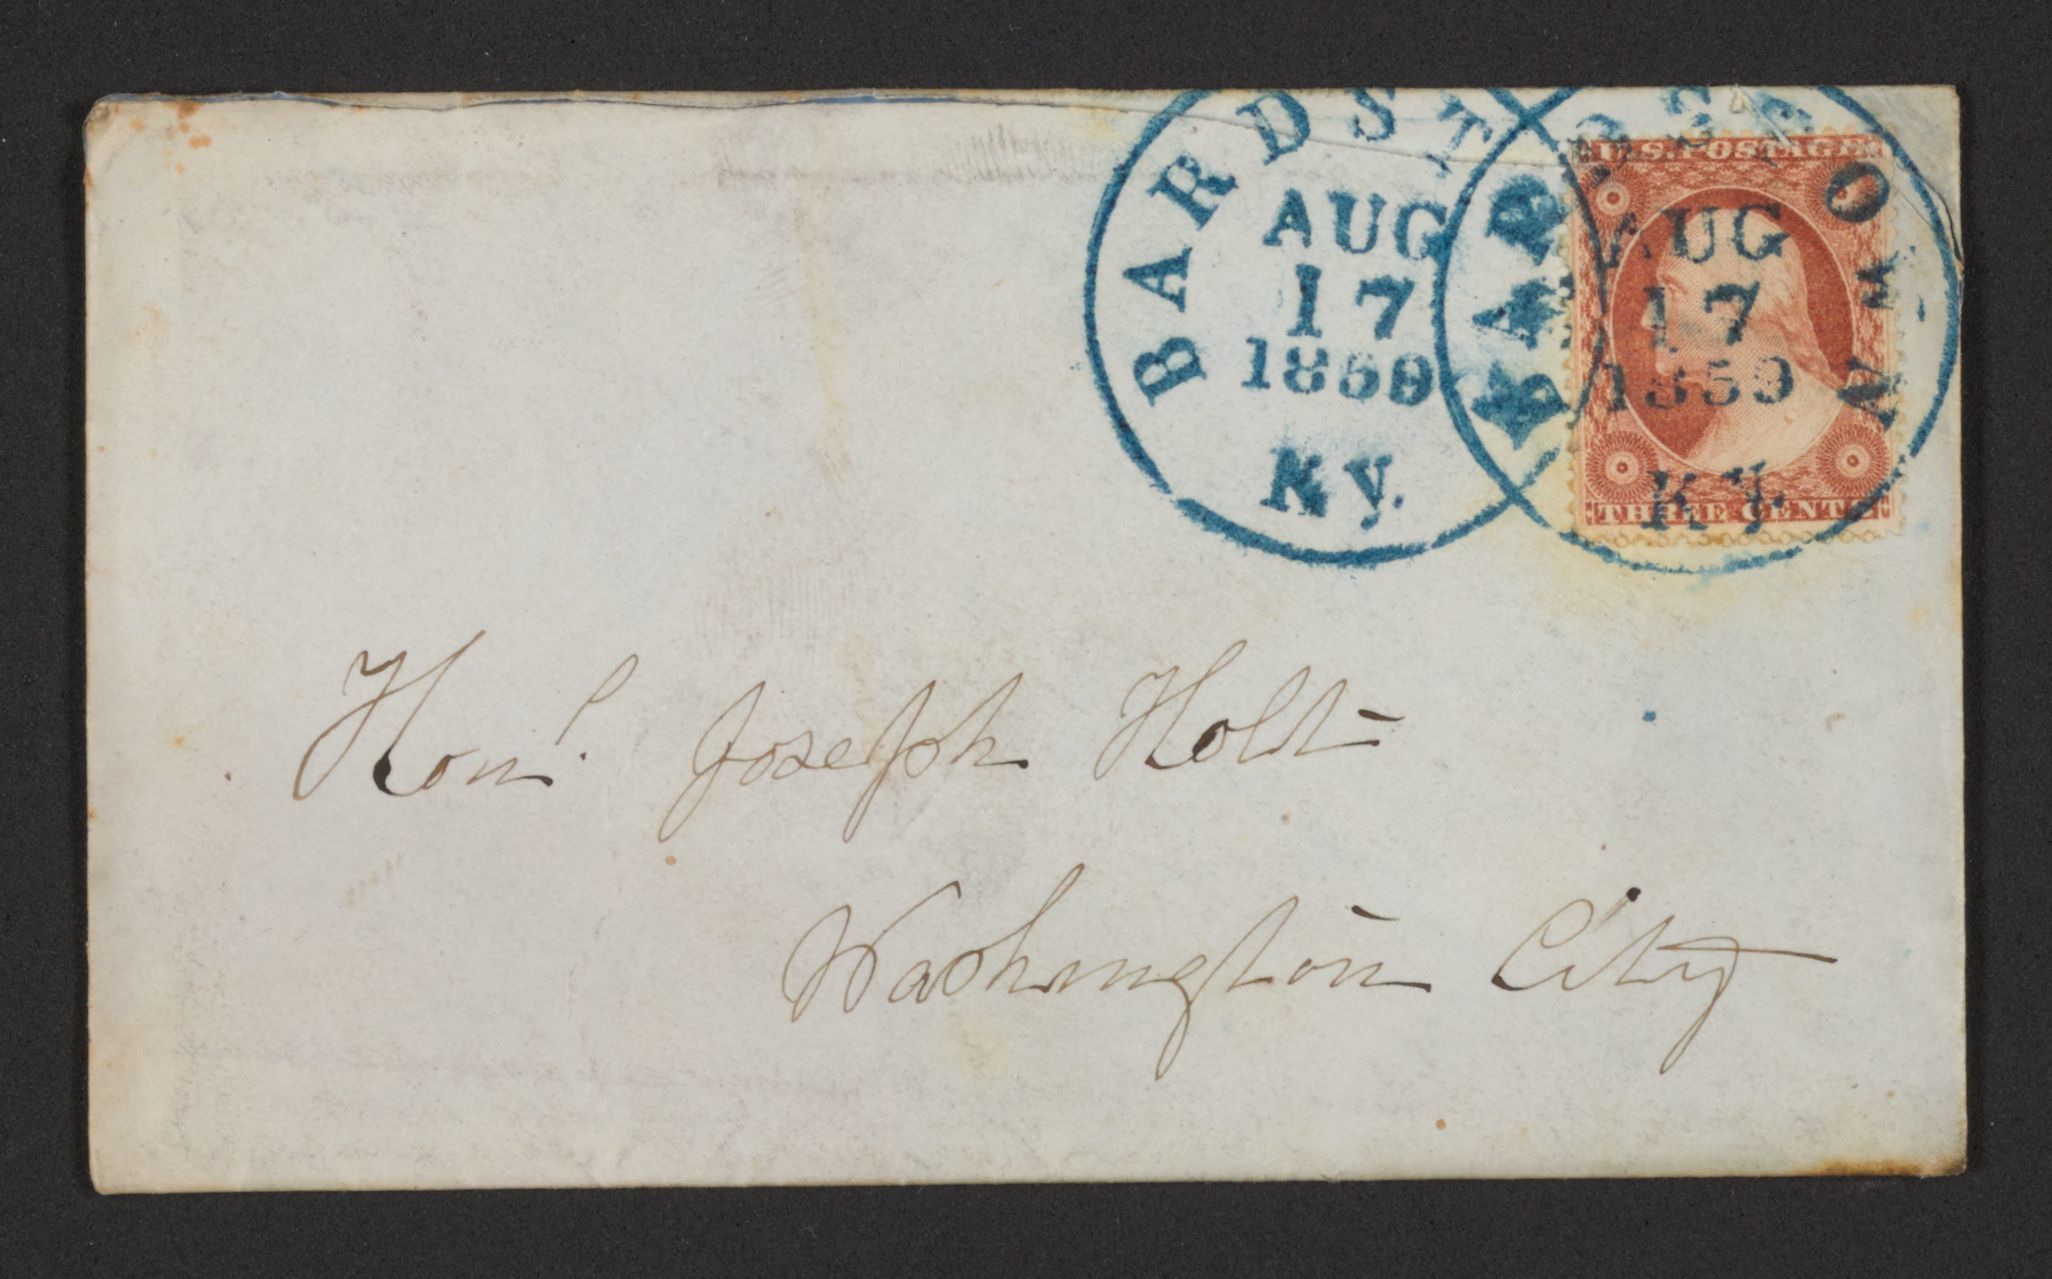 BARDST
AUG
17
1859
Ky.
BARDSTOWN
AUG
17
1859
Ky.
U.S. POSTAGE
THREE CENTS
Honl. Joseph Holt
Washington City